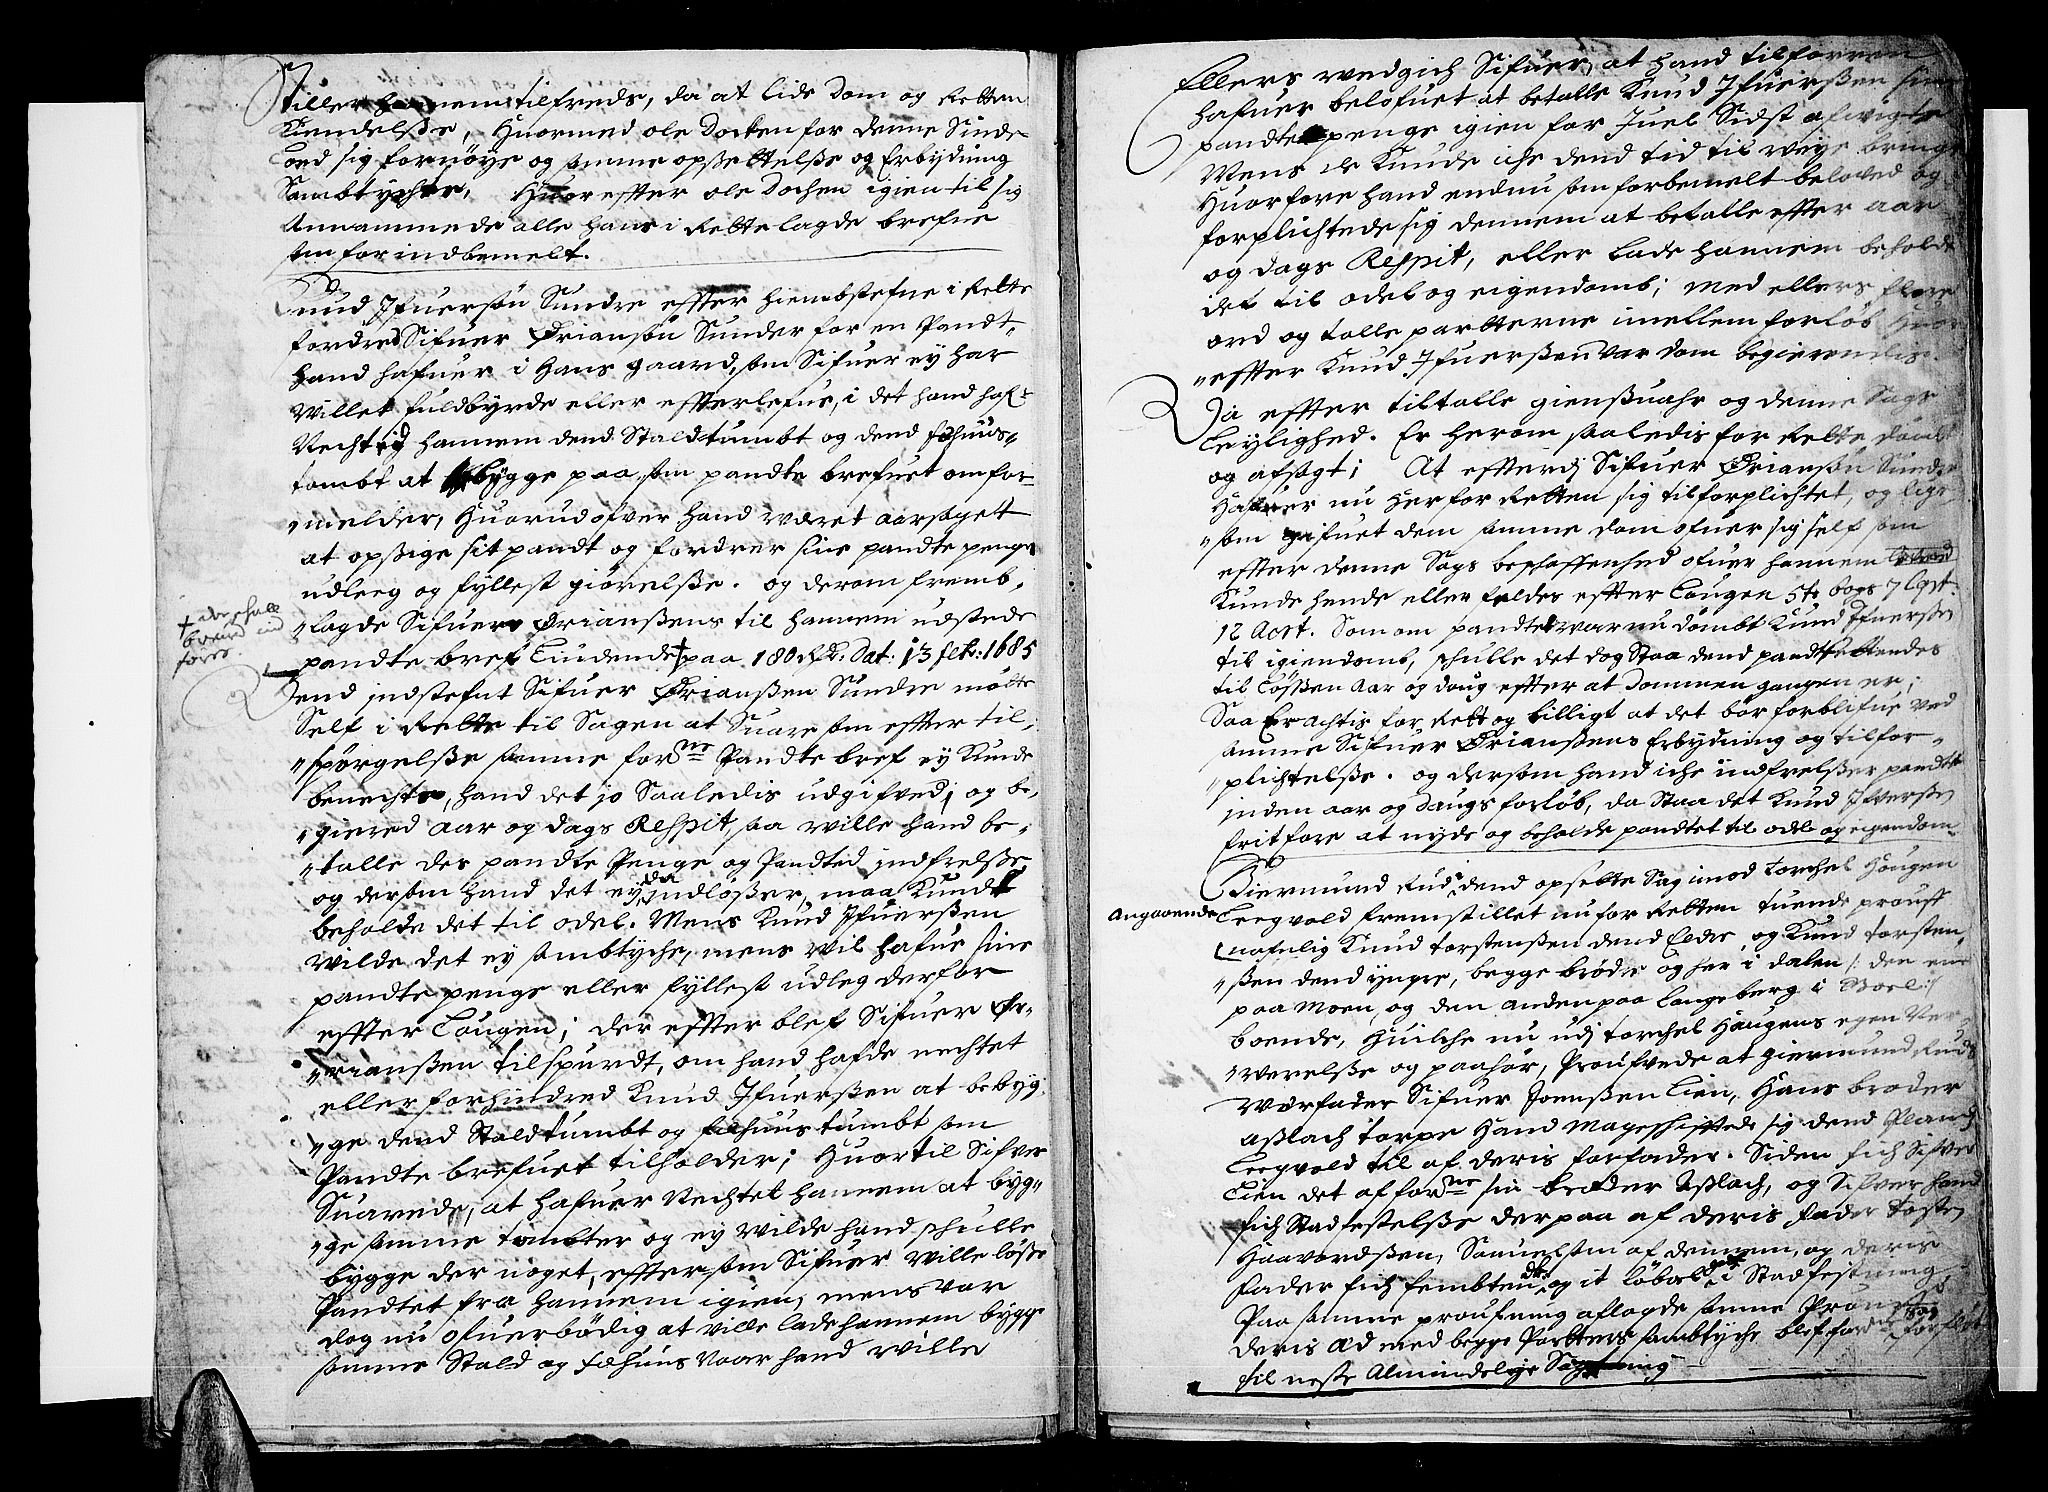 stiller hannem tilfreds, da at lide Dom og Rettens
Kiendelsße, Huormed ole Docken for denne Sinde
Loed sig fornøye og samme opsettelsße og Erbydning
Sambtychte, Huorefter ole Dochen igien til sig
Annammede alle hans i Rette lagde brefue
som for indbemelt.
Knud Ifuersøn Sundre effter hiembstefne i Rette
fordred Sifuer Ørianssøn Sunder for en Pandt,
hand hafuer i Hans gaard, som Sifuer ey har
Willet fuldbyrde eller effterlefue, i det hand haf-
Nechtid hannem dend Staldtumbt og dend fæhuus-
tombt at bygge paa som pandte brefuet omfor-
melder, Huorudofver hand været aarsaget
at opsige sit pandt og fordrer sine pandte penge
udleeg og fyllest giørelsße. og derom fremb-
lagde Sifuer Ørianßens til hannem udstede
pandte bref Liudende + paa 180 Rdr. Dat: 13 feb: 1685
+ der schall
breed ind
føres.
Dend indstefnt Sifuer Ørianßen Sundre mødte
Self i Rette til Sagen at Suare som effter til-
spørgelsße samme forne Pandte bref ey Kunde
benechte, hand det jo Saaledis udgifved, og be-
giered aar og dags Respit, saa wille hand be-
talle des pandte Penge og Pandted indfrelsße
og dersom hand det ey da indløßer, maa Knud
beholde det til odel. Mens Knud Ifuerßen
wilde det ey sambtyche, mens vil hafue sine
pandte penge eller fyllest udleg derfor
effter Lougen; der effter blef Sifuer Ør-
rianßen tilspurdt, om hand hafde nechtet
eller forhindred Knud Ifuerßen at bebyg-
ge dend Staldtumbt og fæhuus tumbt som
Pandte brefuet tilholder; Huortil Sifver
Suarede, at hafuer Nechtet hannem at byg-
ge samme tombter og ey wilde hand schulle
bygge der noget, effter som Sifuer wille løsße
Pandtet fra hannem igien, mens var
dog nu ofuerbødig at ville lade hannem bygge
samme Stald og fæhuus naar hand wille
Ellers wedgich Sifuer, at hand tilforren
hafuer belofuet at betalle Knud Ifuerßen sine
pandte penge igien for Juel Sidst afwigte
Mens de Kunde iche dend tid til weye bringe
Huorfore hand endnu som forbemelt beloved og
forplichtede sig dennem at betalle effter aar
og dags Respit, eller lade hannem beholde
det til odel og eigendomb; med ellers flere
ord og talle partterne imellem forløb Huor-
effter Knud Ifuerßen var dom begierendis.
Da effter tiltalle gienßuahr og denne Sags
Leylighed. Er herom saaledis for Rette dømbt
og afsagt; At effterdj Sifuer Ørianssøn Sundre
Hafuer nu her for Retten sig tilforplichtet, og lige
som gifuet dem samme dom ofuer sig self som
effter denne Sags beschaffenhed ofuer hannem
Kunde hende eller feldes effter Lougen 5te bogs 7 Cpt.
12 Art. Som om pandtet war nu dømbt Knud Ifuerßen
til igiendomb, schulle det dog Staa dend pandtsettendes
til Løßen Aar og daug effter at Dommen gangen er;
Saa Er achtis for Rett og billigt at det bør forblifue ved
samme Sifuer Ørianßens Erbydning og tilfor-
plichtelsße. og dersom hand iche indfrelsßer pandtet
inden aar og Daugs forløb, da Staa det Knud Ifwersßen
frit fore at nyde og beholde pandtet til odel og eigendom.
Giermund Rud i dend opsette Sag imod Torchel Hougen
angaaende Leegvold fremstillet nu for Retten tuende prouff
nafnlig Knud torstenßen dend Elder, og Knud torsten-
ßen dend yngre, begge brødre og her i dalen /: den ene
paa Moen, og den anden paa Langeberg i :/
boende, Huilche nu udj Torchel Haugens egen Ner-
werelsße og paahør, Proufvede at Giermund Ruds
Wørfader Sifuer Joensßen Lien, Hans broder
Aßlach torpe Hand Mageschifftede sig dend Plands
Leegvold til af deris forfader. Siden fich Sifver
Lien det af forne sin broder Aßlach, og Sifver hand
fich Stadfestelsße derpaa af deris fader Tosten
Haavordßen, Samuel som af dennem, og deris
fader fich fembten dr: og it løbsel i Stadfestning
Paa samme proufning aflagde samme Prouf
deris Æd med begge Parters sambtyche blef for
til neste Almindelige Sagting